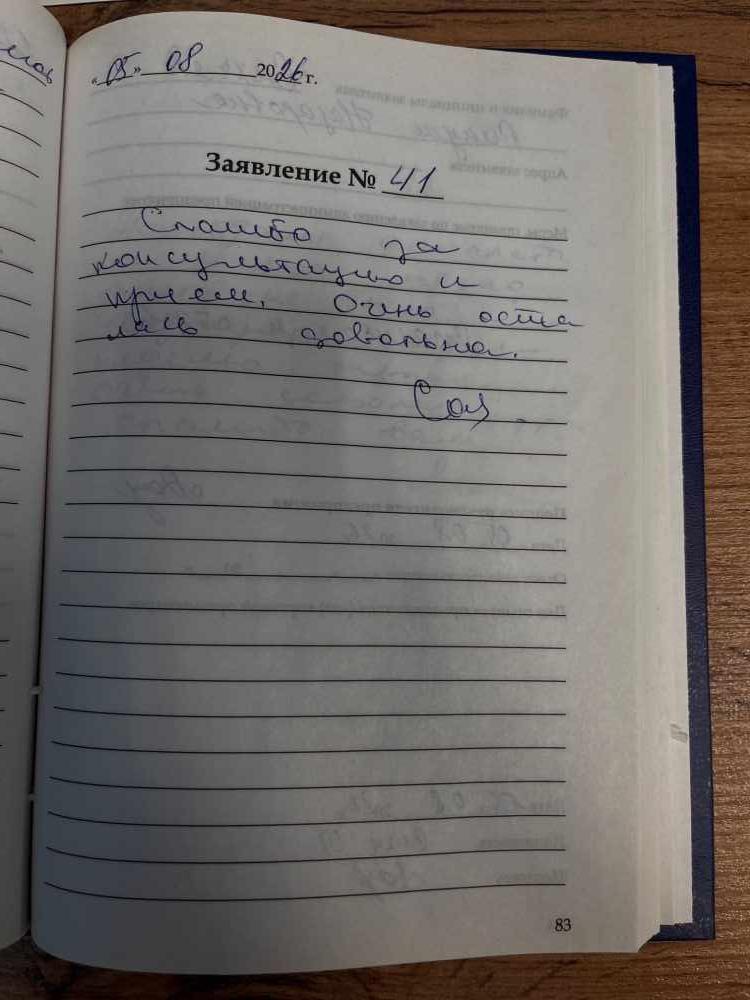 «05» 08 2026 г.
Заявление № 41
Спасибо за
консультацию и
прием. Очень оста
лась довольна.
83